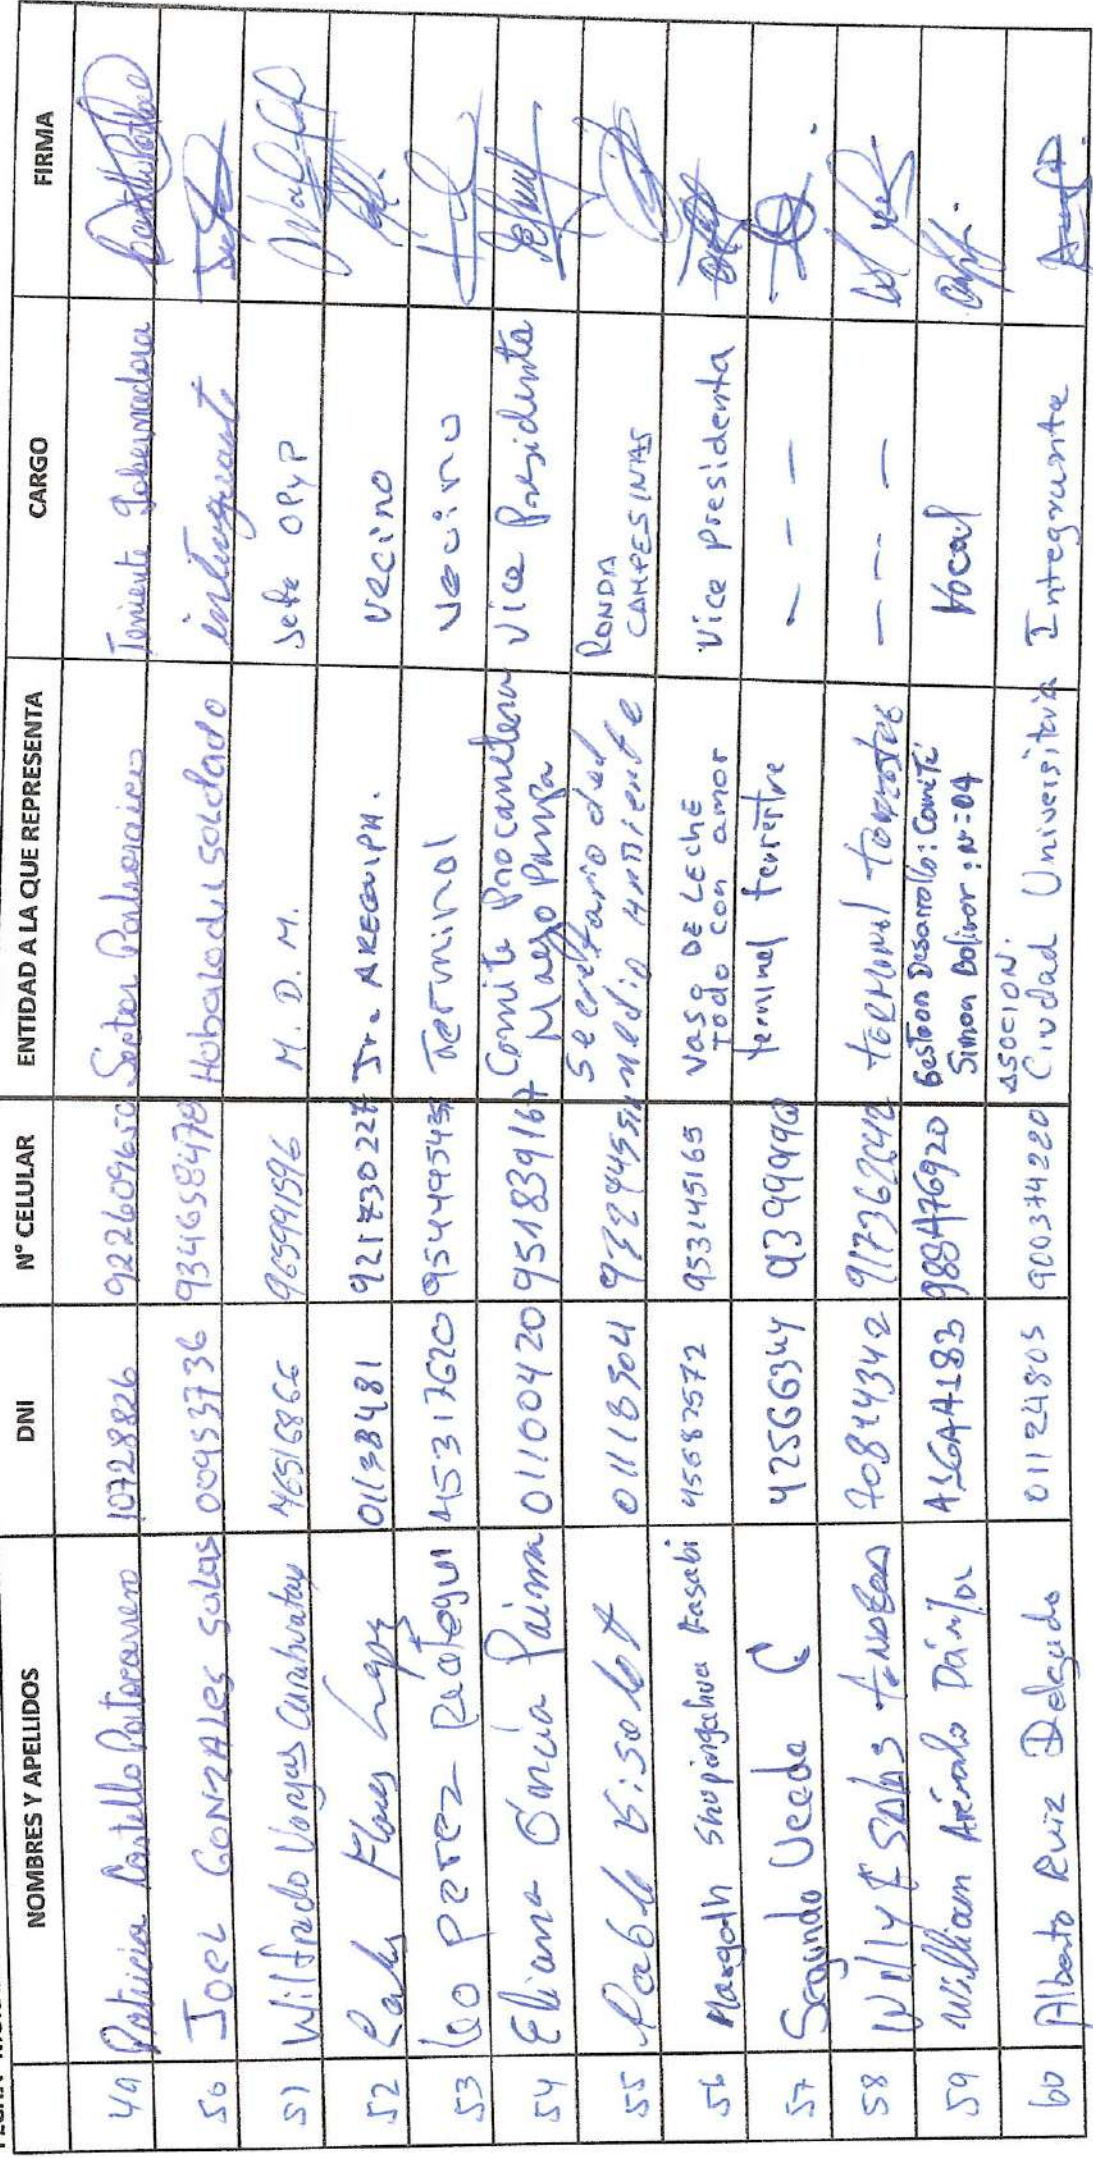 NOMBRES Y APELLIDOS DNI N° CELULAR ENTIDAD A LA QUE REPRESENTA CARGO FIRMA
49 Patricia Castello Portocarrero 10728826 922609650 Sector Teniente Gobernadora
50 Joel GONZALES Salas 00953736 934658478 integrante
51 Wilfredo Vargas Carahuatay 46516866 965991596 M. D. M. Jefe OPyP
52 Flores 01138481 921730227 Jr. AREQUIPA. vecino
53 Leo Perez Reategui 45317620 954495459 Terminal vecino
54 Eliana García Paima 01100420 951839167 Comite Procarretera Mayo Pampa Vice Presidenta
55 Pablo 01118504 Secretario del medio Ambiente RONDA CAMPESINAS
56 Margoth Shupingahua Fasabi 45687572 953245165 VASO DE LECHE Todo con amor Vice presidenta
57 Segundo Uceda C 42566344 939999960 terminal terrestre - - -
58 Willy E SALAS 70844342 917362042 TERMINAL terrestre - - -
59 William Arévalo 988476920 Gestion Desarrollo: Comité Simon Bolivar: N=04 Vocal
60 Alberto Ruiz Delgado 01124805 900374220 ASOCION. Ciudad Universitaria Integrante